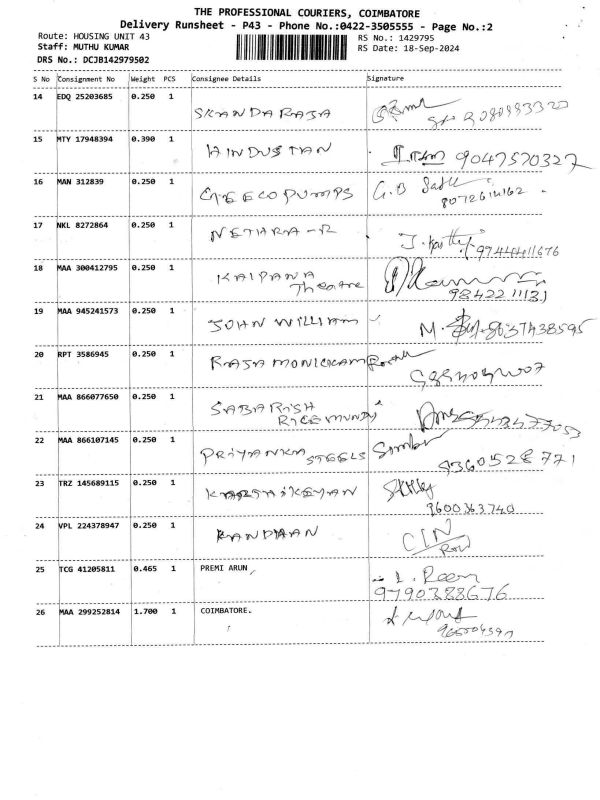 THE PROFESSIONAL COURIERS, COIMBATORE
Delivery Runsheet - P43 - Phone No.:0422-3505555 - Page No.:2
Route: HOUSING UNIT 43 RS No.: 1429795
Staff: MUTHU KUMAR RS Date: 18-Sep-2024
DRS No.: DCJB142979502
S No Consignment No Weight PCS Consignee Details Signature
14 EDQ 25203685 0.250 1 SKANDA RAJA
15 MTY 17948394 0.390 1 HINDUSTAN 9047570327
16 MAN 312839 0.250 1 PUMPS G.B
8072614162
17 NKL 8272864 0.250 1 NETHRA-R J.
18 MAA 300412795 0.250 1 KALPANA
Theatre
9842211131
19 MAA 945241573 0.250 1 JOHN WILLIAM M.
20 RPT 3586945 0.250 1 RAJA MONICKAM
21 MAA 866077650 0.250 1 SABARISH
RICE MUNDY
22 MAA 866107145 0.250 1 PRIYANKA STEELS
9360528771
23 TRZ 145689115 0.250 1 KARTHIKEYAN
9600363740
24 VPL 224378947 0.250 1
25 TCG 41205811 0.465 1 PREMI ARUN,
9790388676
26 MAA 299252814 1.700 1 COIMBATORE.